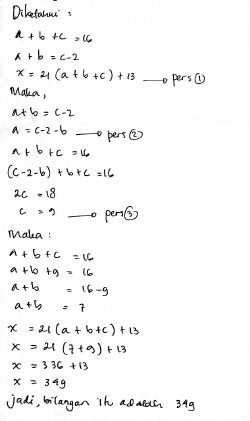 Diketahui :
a + b + c = 16
a + b = c-2
x = 21 (a + b + c) + 13 → pers ①
Maka,
a+b = c-2
a = c-2-b → pers ②
a + b + c = 16
(c-2-b) + b + c = 16
2c = 18
c = 9 → pers ③
Maka :
a + b + c = 16
a + b + 9 = 16
a + b = 16-9
a + b = 7
x = 21 (a + b + c) + 13
x = 21 (7 + 9) + 13
x = 336 + 13
x = 349
jadi, bilangan itu adalah 349